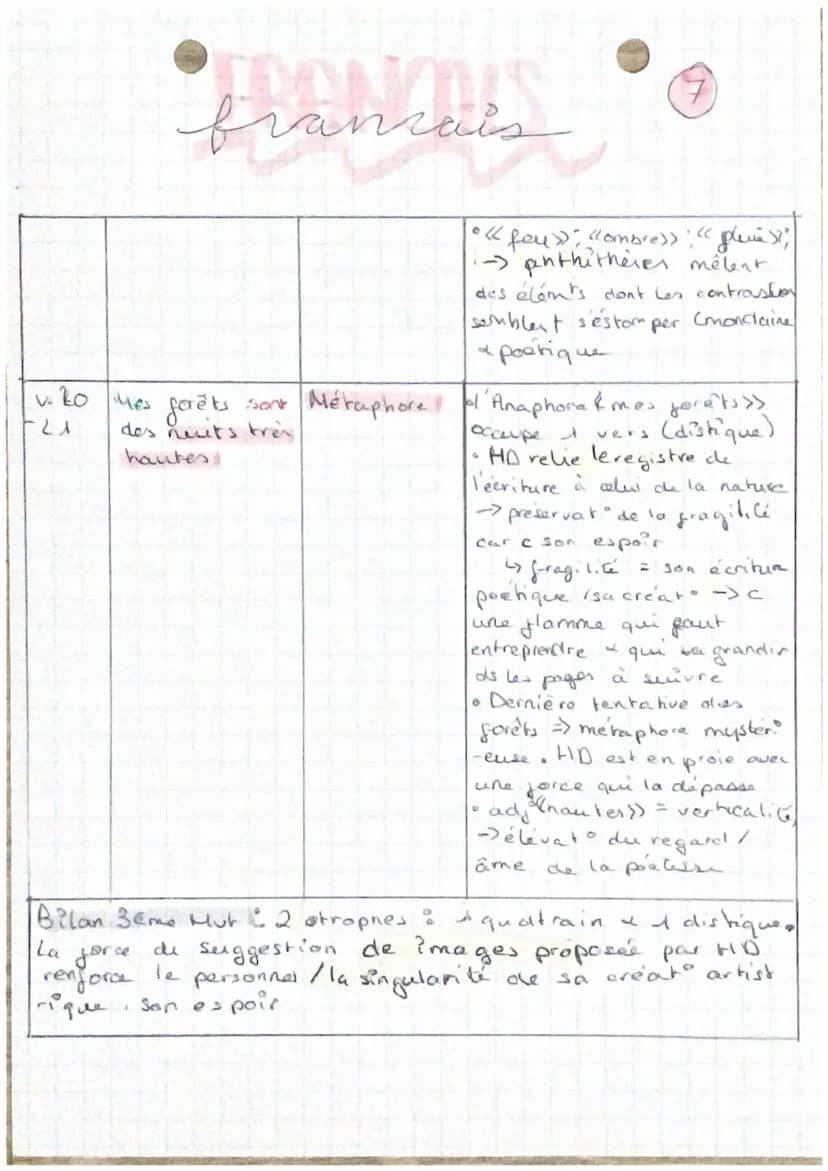 FRANÇAIS
francais
7
• « feu » ; « ombre » ; « pluie » ;
-> anthithèses mêlent
des éléments dont les contrastes
semblent s'éstomper
& poétique
v. 20
-21
Mes forêts sont
des nuits très
hautes
Métaphore
l'Anaphore « mes forêts »
occupe 1 vers (distique)
• HD relie le registre de
l'écriture à celui de la nature
-> préservat° de la fragilité
car c son espoir
↳ fragilité = son écriture
poétique / sa créat° -> c
une flamme qui faut
entreprendre & qui va grandir
ds les pages à suivre
• Dernière tentative des
forêts => métaphore mystéri
-euse. HD est en proie avec
une force qui la dépasse
• adj « hautes » = verticalité,
-> élévat° du regard /
âme de la poétesse
Bilan 3ème Mvt : 2 strophes : 1 quatrain & 1 distique.
La force de suggestion de images proposée par HD
renforce le personnel / la singularité de sa créat° artist
-ique, son espoir